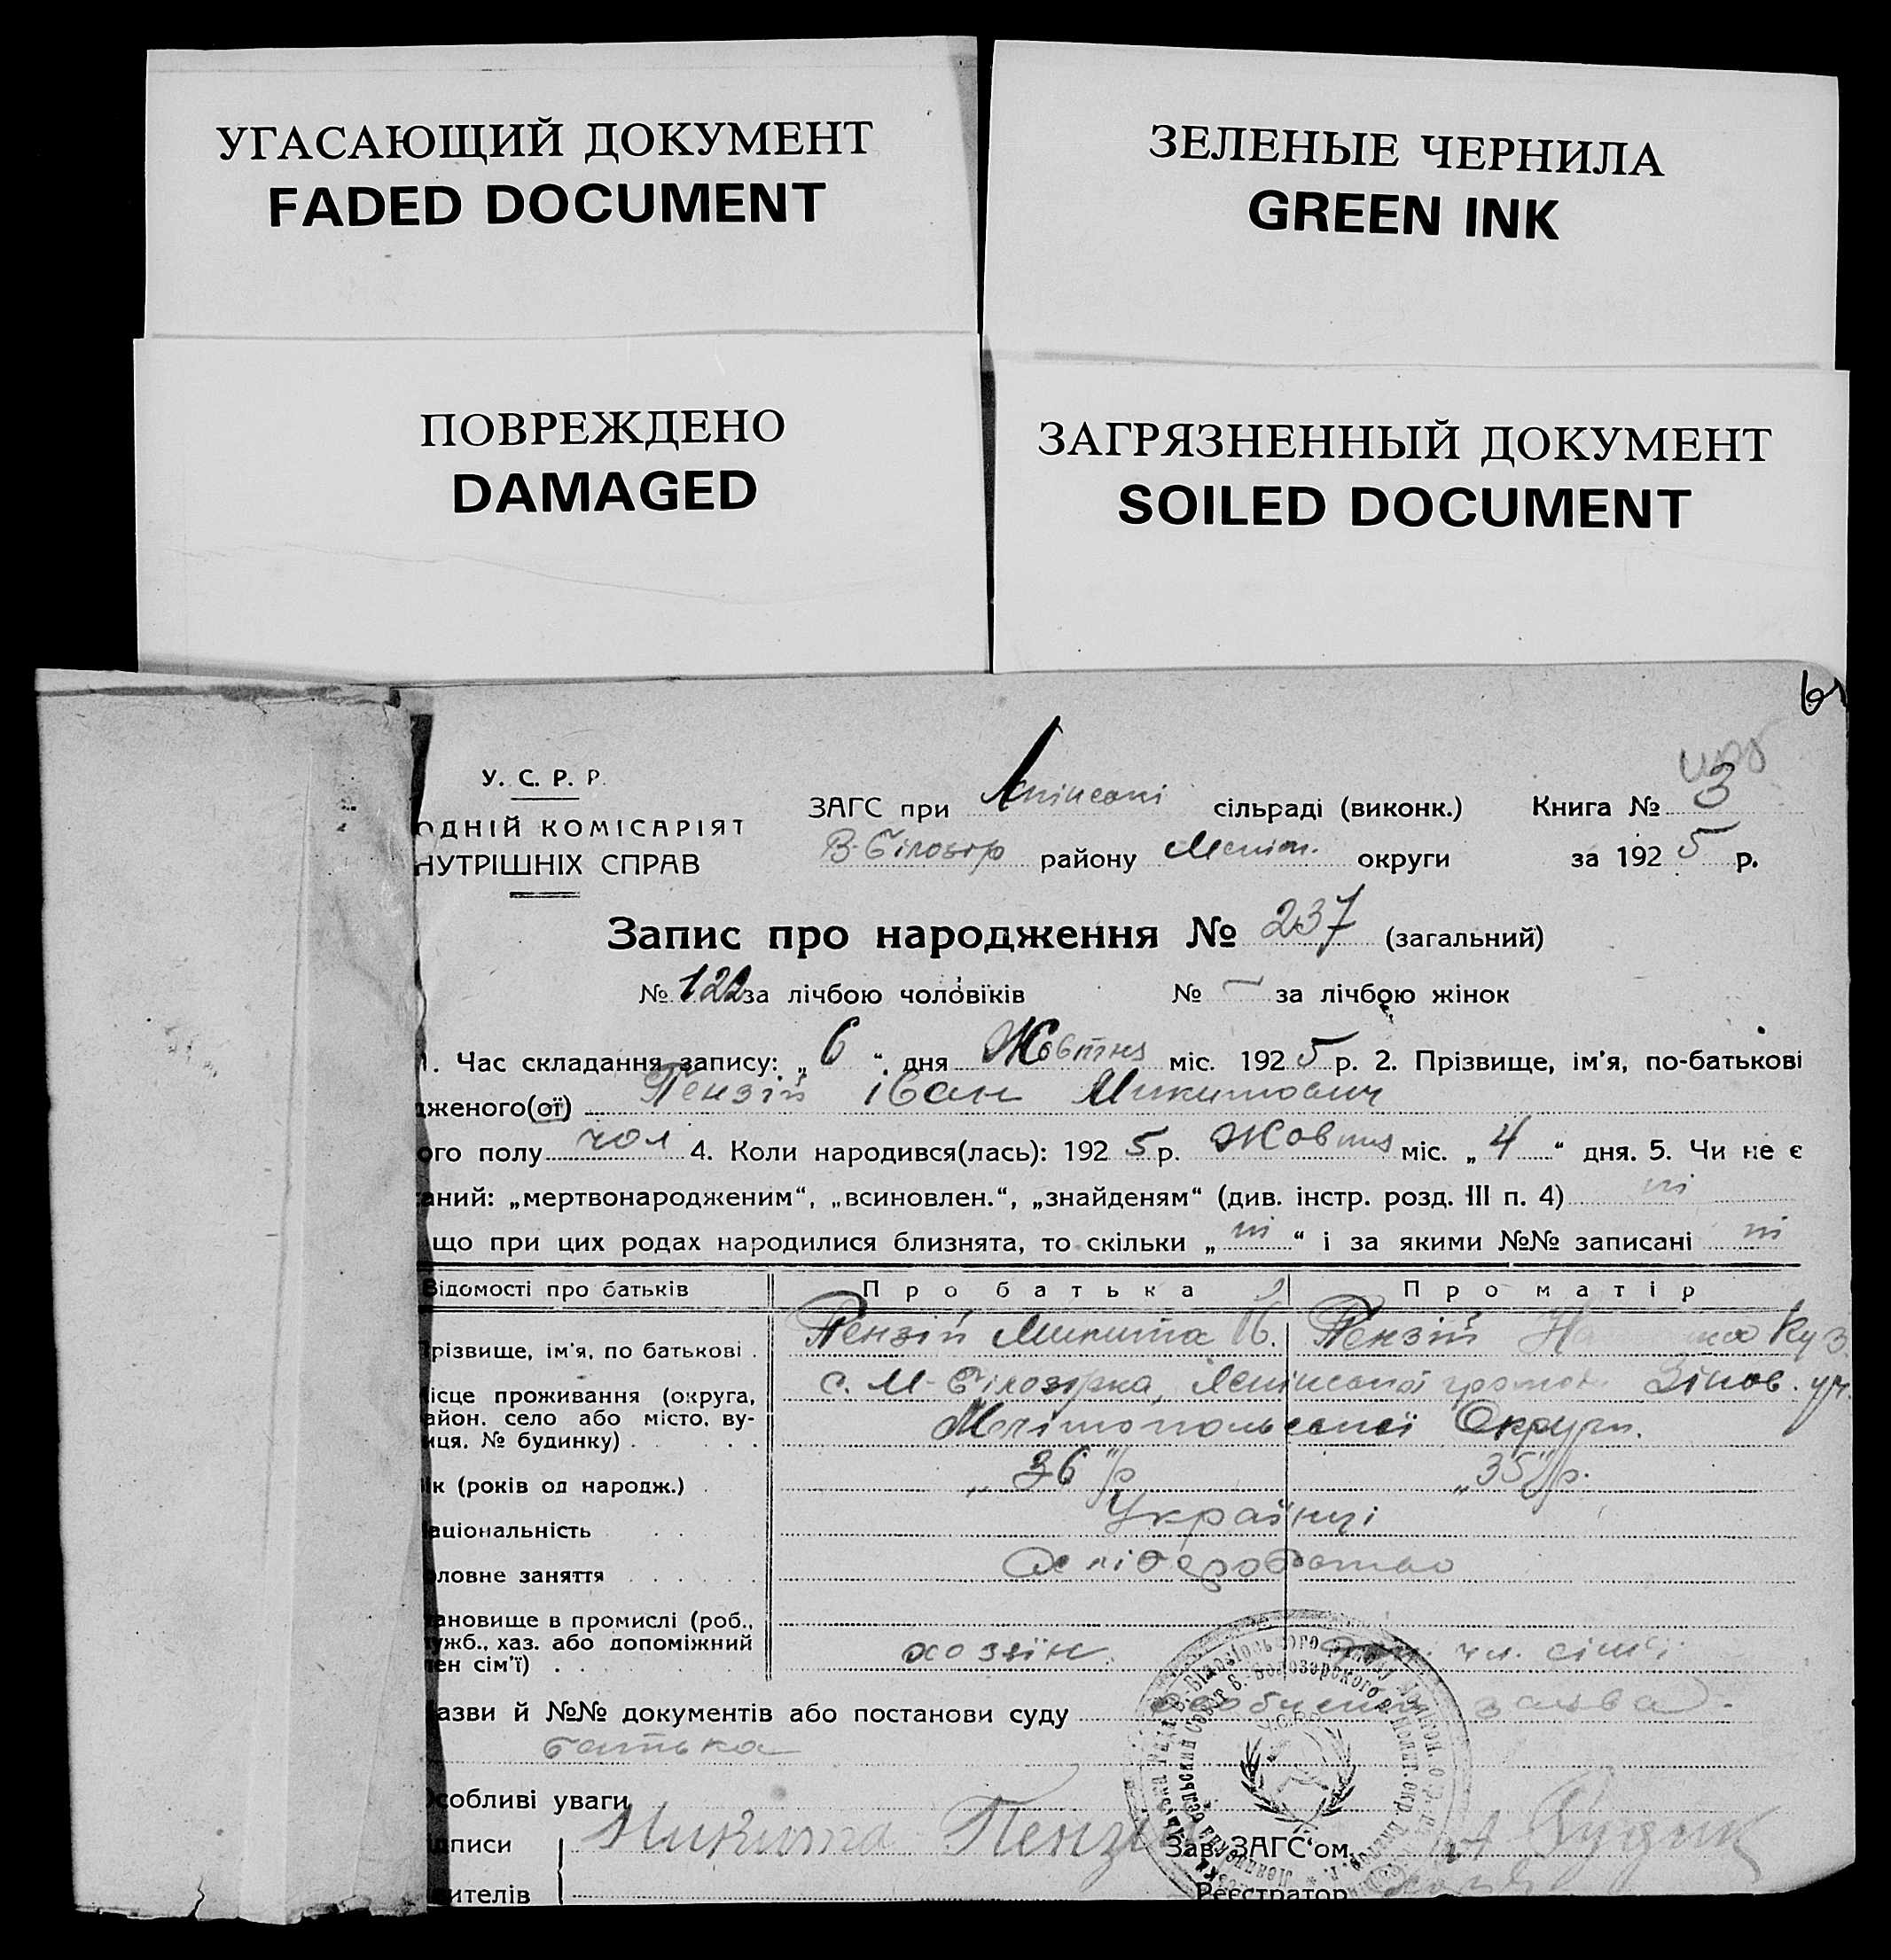 УГАСАЮЩИЙ ДОКУМЕНТ
FADED DOCUMENT
ЗЕЛЕНЫЕ ЧЕРНИЛА
GREEN INK
ПОВРЕЖДЕНО
DAMAGED
ЗАГРЯЗНЕННЫЙ ДОКУМЕНТ
SOILED DOCUMENT
У. С. Р. Р.
ОДНІЙ КОМІСАРІЯТ
НУТРІШНІХ СПРАВ
ЗАГС при сільраді (виконк.) Книга № 3
В-Білозір району Меліт. округи за 1925 р.
Запис про народження № 237 (загальний)
№ 122 за лічбою чоловіків № — за лічбою жінок
1. Час складання запису: „6“ дня Жовтня міс. 1925 р. 2. Прізвище, ім'я, по-батькові
дженого(ої) Пензій Іван Микитович
ого полу чол 4. Коли народився(лась): 1925 р. Жовтня міс. „4“ дня. 5. Чи не є
аний: „мертвонародженим“, „всиновлен.“, „знайденям“ (див. інстр. розд. III п. 4) ні
що при цих родах народилися близнята, то скільки „ні“ і за якими №№ записані ні
Відомості про батьків Про батька Про матір
Прізвище, ім'я, по батькові . Пензій Микита П. Пензій Куз.
ісце проживання (округа, с. М-Білозірка, Ленінської
айон, село або місто, ву-
иця, № будинку) . Мелітопольської Округи.
ік (років од народж.) . „36“ р „35“ р.
аціональність Українці
оловне заняття Хліборобство
ановище в промислі (роб.,
ужб., хаз. або допоміжний
ен сім'ї) . хозяїн чл. сім'ї
азви й №№ документів або постанови суду особиста заява
батька
Особливі уваги
дписи Микита Пензій Зав. ЗАГС'ом
ителів Реєстратор